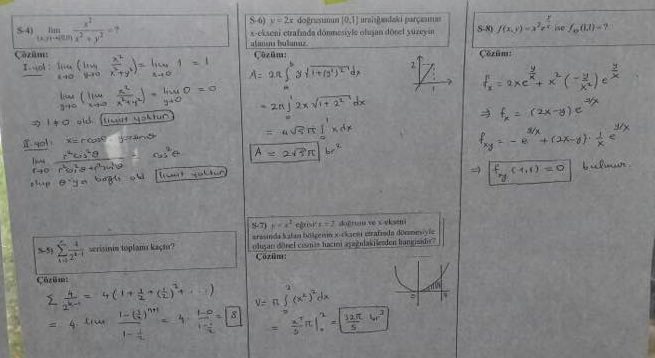 S-4) lim (x,y)→(0,0) x²/(x²+y²) = ?
Çözüm:
I. yol: lim x→0 (lim y→0 x²/(x²+y²)) = lim x→0 1 = 1
lim y→0 (lim x→0 x²/(x²+y²)) = lim y→0 0 = 0
⇒ 1≠0 old. limit yoktur
II. yol: x=rcosθ
lim r→0 r²cos²θ/(r²cos²θ+r²sin²θ) = cos²θ
olup θ'ya bağlı old. limit yoktur
S-5) 4/2ᵏ⁻¹ serisinin toplamı kaçtır?
Çözüm:
Σ 4/2ᵏ⁻¹ = 4(1+1/2+(1/2)²+...)
= 4 lim (1-(1/2)ⁿ⁺¹)/(1-1/2) = 4 (1-0)/(1-1/2) = 8
S-6) y = 2x doğrusunun [0,1] aralığındaki parçasının
x-ekseni etrafında dönmesiyle oluşan dönel yüzeyin
alanını bulunuz.
Çözüm:
A = 2π ∫ₐᵇ y√(1+(y')²) dx
= 2π ∫₀¹ 2x √(1+2²) dx
= 4√5 π ∫₀¹ x dx
A = 2√5 π br²
2
1
S-7) y = x² eğrisi x = 2 doğrusu ve x-ekseni
arasında kalan bölgenin x-ekseni etrafında dönmesiyle
oluşan dönel cismin hacmi aşağıdakilerden hangisidir?
Çözüm:
V = π ∫₀² (x²)² dx
= x⁵/5 π |₀² = 32π/5 br³
S-8) f(x,y) = x²e^(y/x) ise f_xy(1,1) = ?
Çözüm:
fₓ = 2xe^(y/x) + x²(-y/x²) e^(y/x)
⇒ fₓ = (2x-y) e^(y/x)
f_xy = -e^(y/x) + (2x-y) · 1/x e^(y/x)
⇒ f_xy (1,1) = 0 bulunur.